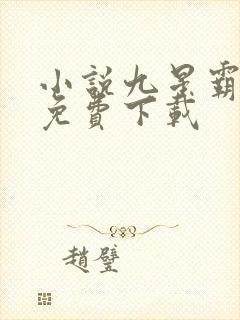 小說九星霸
免費下載
趙壁